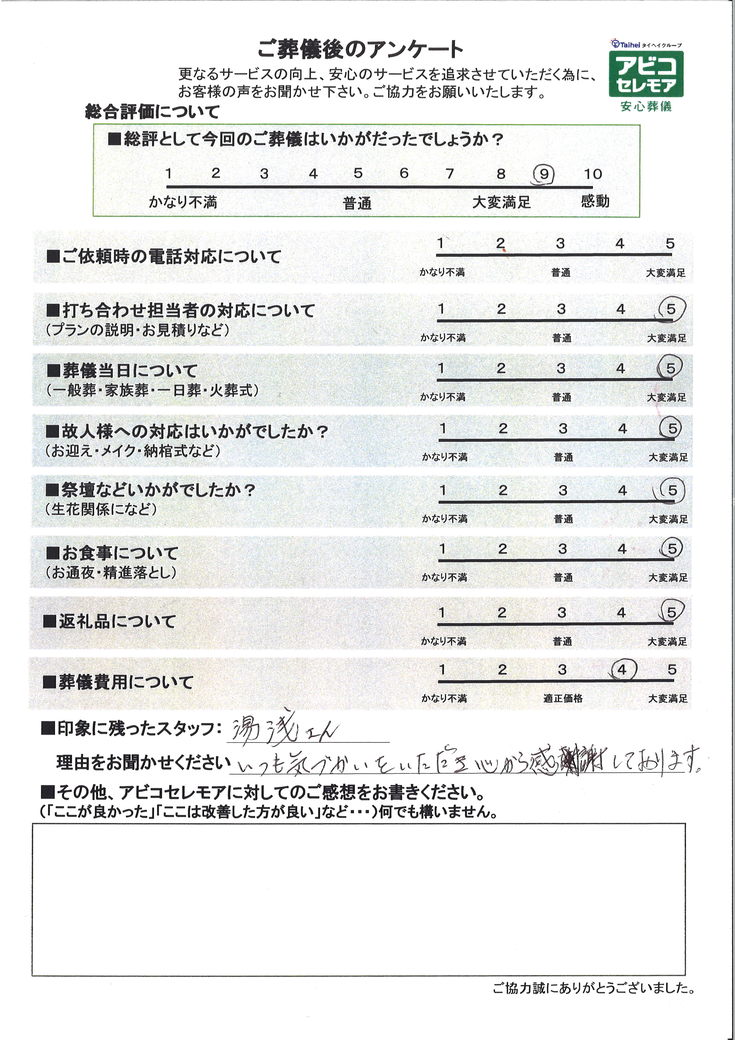 ご葬儀後のアンケート
Taihei タイヘイグループ
アビコ
セレモア
安心葬儀
更なるサービスの向上、安心のサービスを追求させていただく為に、
お客様の声をお聞かせ下さい。ご協力をお願いいたします。
総合評価について
■総評として今回のご葬儀はいかがだったでしょうか？
1 2 3 4 5 6 7 8 9 10
かなり不満 普通 大変満足 感動
■ご依頼時の電話対応について
1 2 3 4 5
かなり不満 普通 大変満足
■打ち合わせ担当者の対応について
(プランの説明・お見積りなど)
1 2 3 4 5
かなり不満 普通 大変満足
■葬儀当日について
(一般葬・家族葬・一日葬・火葬式)
1 2 3 4 5
かなり不満 普通 大変満足
■故人様への対応はいかがでしたか？
(お迎え・メイク・納棺式など)
1 2 3 4 5
かなり不満 普通 大変満足
■祭壇などいかがでしたか？
(生花関係になど)
1 2 3 4 5
かなり不満 普通 大変満足
■お食事について
(お通夜・精進落とし)
1 2 3 4 5
かなり不満 普通 大変満足
■返礼品について
1 2 3 4 5
かなり不満 普通 大変満足
■葬儀費用について
1 2 3 4 5
かなり不満 適正価格 大変満足
■印象に残ったスタッフ： 湯浅さん
理由をお聞かせください いつも気づかいをいただき心から感謝しております。
■その他、アビコセレモアに対してのご感想をお書きください。
(「ここが良かった」「ここは改善した方が良い」など・・・)何でも構いません。
ご協力誠にありがとうございました。